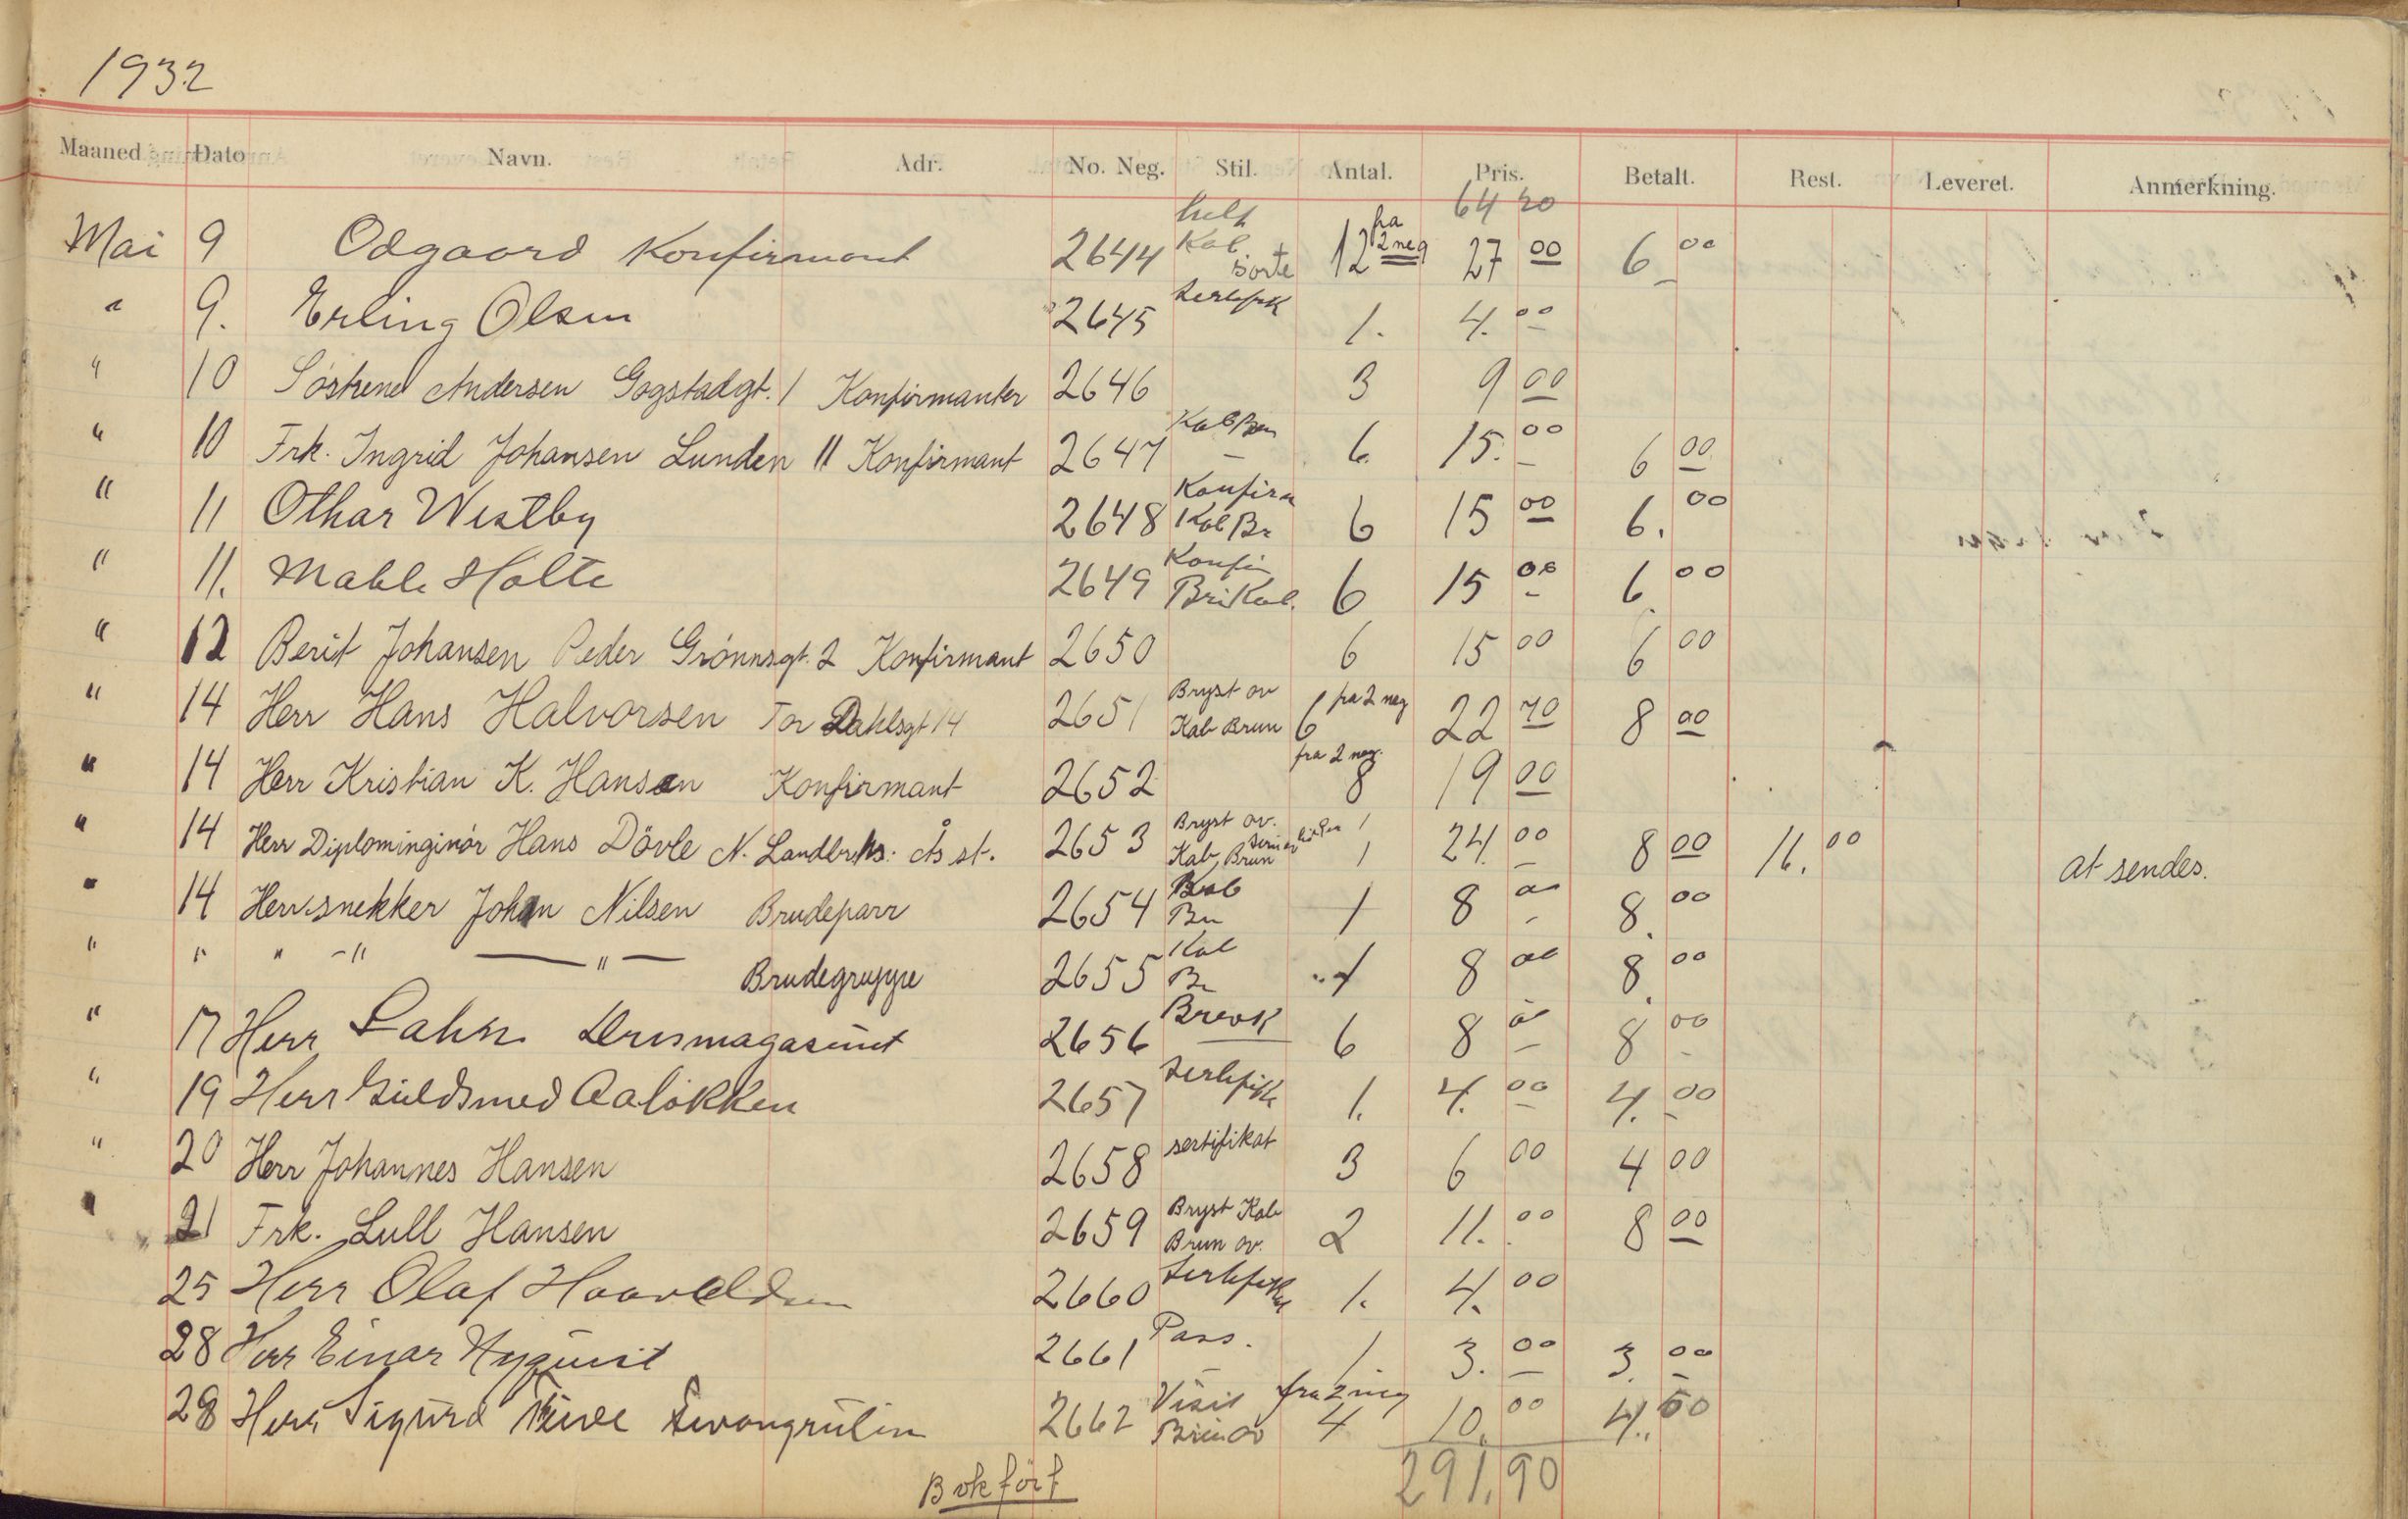 1932
Maaned Dato Navn. Adr. No. Neg. Stil. Antal. Pris. Betalt. Rest. Leveret. Anmerkning.
64 20
Mai 9 Odgaard Konfirmant 2644 helt Kab sorte 12 fra 2 neg 27 00 6 00
" 9. Erling Olsen 2645 1. 4. 00
" 10 Søstrene Andersen Gogstadgt. 1 Konfirmanter 2646 3 9 00
" 10 Frk. Ingrid Johansen Lunden 11 Konfirmant 2647 Kab Brun 6. 15. 00 6 00
" 11 Othar Westby 2648 Konfirm Kab Br 6 15 00 6. 00
" 11. Mable Holte 2649 Konfir Br. Kab. 6 15 00 6. 00
" 12 Berit Johansen Peder Grønnsgt. 2 Konfirmant 2650 6 15 00 6 00
" 14 Herr Hans Halvorsen Tor Dahlsgt 14 2651 Bryst ov Kab Brun 6 fra 2 neg 22 70 8 00
" 14 Herr Kristian K. Hansen Konfirmant 2652 fra 2 neg. 8 19 00
" 14 Herr Diplominginør Hans Dövle N. Landbrks. Ås st. 2653 Bryst ov. Kab Brun 1 1 24. 00 8 00 16. 00 at sendes.
" 14 Herr snekker Johan Nilsen Brudeparr 2654 Kab Br 1 8 00 8. 00
" " " -"- — " — Brudegruppe 2655 Kab Br 1 8 00 8. 00
" 17 Herr Lahn 2656 Brevk 6 8 00 8 00
" 19 Herr Guldsmed Aaløkken 2657 1. 4. 00 4. 00
" 20 Herr Johannes Hansen 2658 sertifikat 3 6 00 4 00
" 21 Frk. Lull Hansen 2659 Bryst Kab Brun ov. 2 11. 00 8 00
25 Herr Olaf Haavaldsen 2660 1. 4. 00
28 Herr Einar Nyquist 2661 Pass. 1 3. 00 3. 00
28 Herr Sigurd 2662 Visit Brun ov fra 2 neg 4 10. 00 4. 00
Bokført 291,90